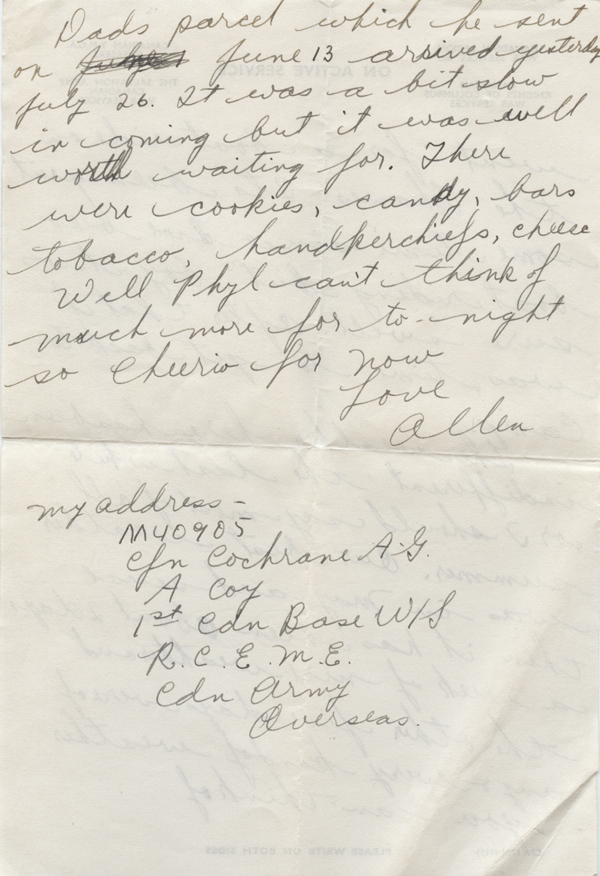 Dads parcel which he sent
on June 13 arrived yesterday
July 26. It was a bit slow
in coming but it was well
worth waiting for. There
were cookies, candy, bars
tobacco, handkerchiefs, cheese
Well Phyl can't think of
much more for to-night
so Cheerio for now
Love
Allen
my address -
M40905
Cfn Cochrane A.G.
A Coy
1st Cdn Base W/S
R.C.E.M.E.
Cdn Army
Overseas.